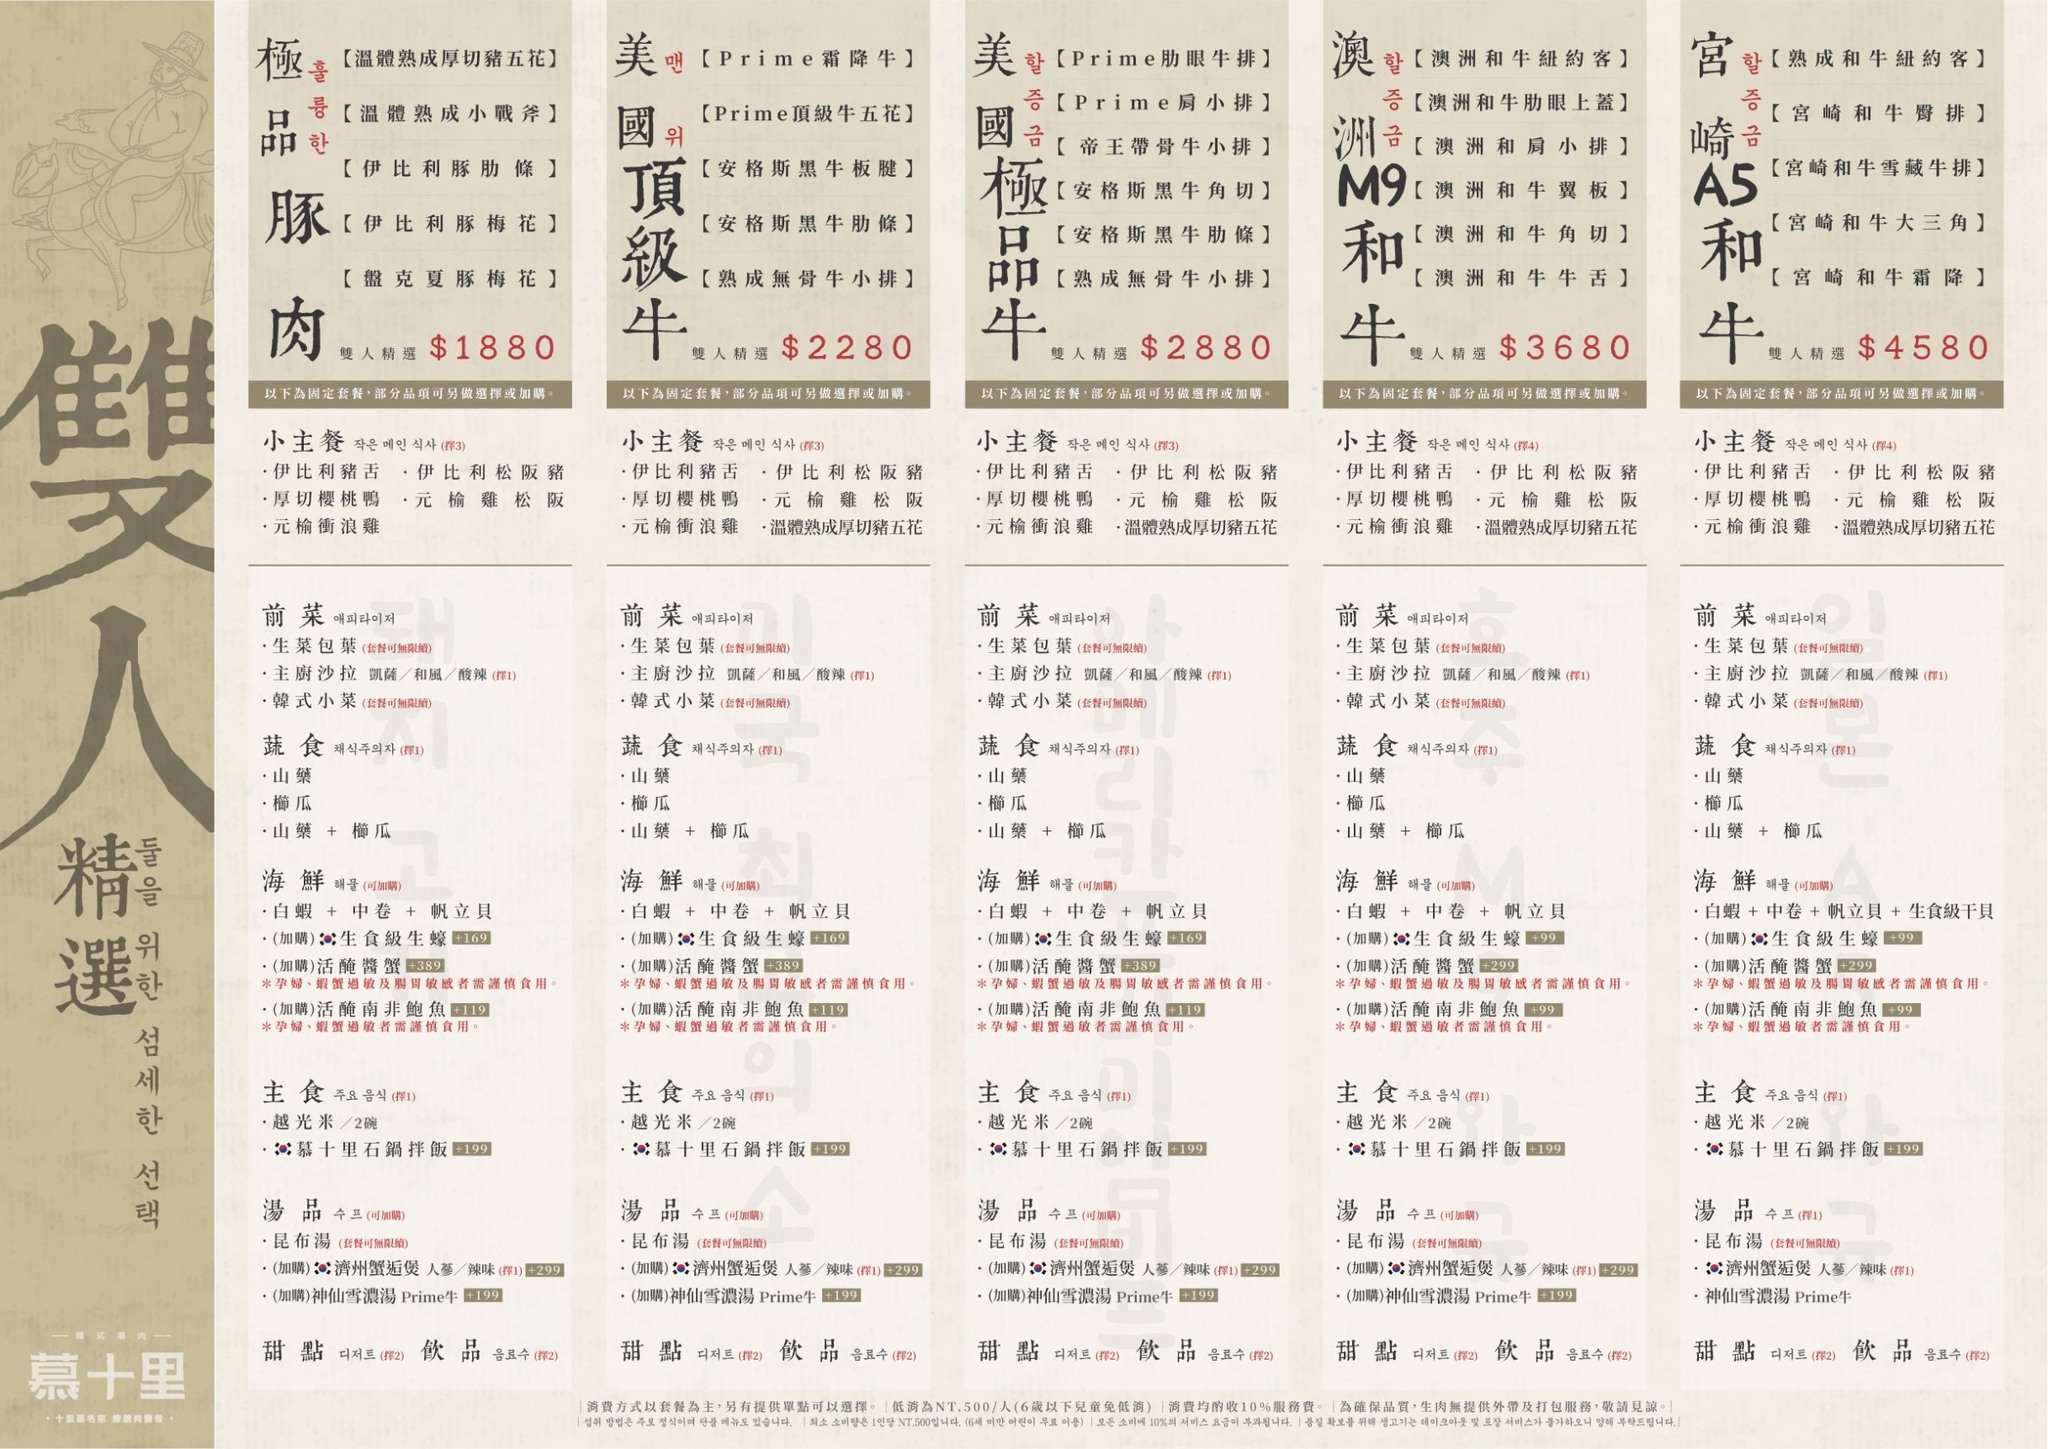 雙人
精選
둘을 위한 섬세한 선택
韓式燒肉
慕十里
極品豚肉
훌륭한
【溫體熟成厚切豬五花】
【溫體熟成小戰斧】
【伊比利豚肋條】
【伊比利豚梅花】
【盤克夏豚梅花】
雙人精選 $1880
以下為固定套餐，部分品項可另做選擇或加購。
小主餐 작은 메인 식사 (擇3)
·伊比利豬舌 ·伊比利松阪豬
·厚切櫻桃鴨 ·元榆雞松阪
·元榆衝浪雞
前菜 애피타이저
·生菜包葉 (套餐可無限續)
·主廚沙拉 凱薩／和風／酸辣 (擇1)
·韓式小菜 (套餐可無限續)
蔬食 채식주의자 (擇1)
·山藥
·櫛瓜
·山藥 + 櫛瓜
海鮮 해물 (可加購)
·白蝦 + 中卷 + 帆立貝
·(加購)生食級生蠔 +169
·(加購)活醃醬蟹 +389
＊孕婦、蝦蟹過敏及腸胃敏感者需謹慎食用。
·(加購)活醃南非鮑魚 +119
＊孕婦、蝦蟹過敏者需謹慎食用。
主食 주요 음식 (擇1)
·越光米／2碗
·慕十里石鍋拌飯 +199
湯品 수프 (可加購)
·昆布湯 (套餐可無限續)
·(加購)濟州蟹逅煲 人蔘／辣味 (擇1) +299
·(加購)神仙雪濃湯 Prime牛 +199
甜點 디저트 (擇2) 飲品 음료수 (擇2)
美國頂級牛
맨위
【Prime霜降牛】
【Prime頂級牛五花】
【安格斯黑牛板腱】
【安格斯黑牛肋條】
【熟成無骨牛小排】
雙人精選 $2280
以下為固定套餐，部分品項可另做選擇或加購。
小主餐 작은 메인 식사 (擇3)
·伊比利豬舌 ·伊比利松阪豬
·厚切櫻桃鴨 ·元榆雞松阪
·元榆衝浪雞 ·溫體熟成厚切豬五花
前菜 애피타이저
·生菜包葉 (套餐可無限續)
·主廚沙拉 凱薩／和風／酸辣 (擇1)
·韓式小菜 (套餐可無限續)
蔬食 채식주의자 (擇1)
·山藥
·櫛瓜
·山藥 + 櫛瓜
海鮮 해물 (可加購)
·白蝦 + 中卷 + 帆立貝
·(加購)生食級生蠔 +169
·(加購)活醃醬蟹 +389
＊孕婦、蝦蟹過敏及腸胃敏感者需謹慎食用。
·(加購)活醃南非鮑魚 +119
＊孕婦、蝦蟹過敏者需謹慎食用。
主食 주요 음식 (擇1)
·越光米／2碗
·慕十里石鍋拌飯 +199
湯品 수프 (可加購)
·昆布湯 (套餐可無限續)
·(加購)濟州蟹逅煲 人蔘／辣味 (擇1) +299
·(加購)神仙雪濃湯 Prime牛 +199
甜點 디저트 (擇2) 飲品 음료수 (擇2)
美國極品牛
할증금
【Prime肋眼牛排】
【Prime肩小排】
【帝王帶骨牛小排】
【安格斯黑牛角切】
【安格斯黑牛肋條】
【熟成無骨牛小排】
雙人精選 $2880
以下為固定套餐，部分品項可另做選擇或加購。
小主餐 작은 메인 식사 (擇3)
·伊比利豬舌 ·伊比利松阪豬
·厚切櫻桃鴨 ·元榆雞松阪
·元榆衝浪雞 ·溫體熟成厚切豬五花
前菜 애피타이저
·生菜包葉 (套餐可無限續)
·主廚沙拉 凱薩／和風／酸辣 (擇1)
·韓式小菜 (套餐可無限續)
蔬食 채식주의자 (擇1)
·山藥
·櫛瓜
·山藥 + 櫛瓜
海鮮 해물 (可加購)
·白蝦 + 中卷 + 帆立貝
·(加購)生食級生蠔 +169
·(加購)活醃醬蟹 +389
＊孕婦、蝦蟹過敏及腸胃敏感者需謹慎食用。
·(加購)活醃南非鮑魚 +119
＊孕婦、蝦蟹過敏者需謹慎食用。
主食 주요 음식 (擇1)
·越光米／2碗
·慕十里石鍋拌飯 +199
湯品 수프 (可加購)
·昆布湯 (套餐可無限續)
·(加購)濟州蟹逅煲 人蔘／辣味 (擇1) +299
·(加購)神仙雪濃湯 Prime牛 +199
甜點 디저트 (擇2) 飲品 음료수 (擇2)
澳洲M9和牛
할증금
【澳洲和牛紐約客】
【澳洲和牛肋眼上蓋】
【澳洲和肩小排】
【澳洲和牛翼板】
【澳洲和牛角切】
【澳洲和牛牛舌】
雙人精選 $3680
以下為固定套餐，部分品項可另做選擇或加購。
小主餐 작은 메인 식사 (擇4)
·伊比利豬舌 ·伊比利松阪豬
·厚切櫻桃鴨 ·元榆雞松阪
·元榆衝浪雞 ·溫體熟成厚切豬五花
前菜 애피타이저
·生菜包葉 (套餐可無限續)
·主廚沙拉 凱薩／和風／酸辣 (擇1)
·韓式小菜 (套餐可無限續)
蔬食 채식주의자 (擇1)
·山藥
·櫛瓜
·山藥 + 櫛瓜
海鮮 해물 (可加購)
·白蝦 + 中卷 + 帆立貝
·(加購)生食級生蠔 +99
·(加購)活醃醬蟹 +299
＊孕婦、蝦蟹過敏及腸胃敏感者需謹慎食用。
·(加購)活醃南非鮑魚 +99
＊孕婦、蝦蟹過敏者需謹慎食用。
主食 주요 음식 (擇1)
·越光米／2碗
·慕十里石鍋拌飯 +199
湯品 수프 (可加購)
·昆布湯 (套餐可無限續)
·(加購)濟州蟹逅煲 人蔘／辣味 (擇1) +299
·(加購)神仙雪濃湯 Prime牛 +199
甜點 디저트 (擇2) 飲品 음료수 (擇2)
宮崎A5和牛
할증금
【熟成和牛紐約客】
【宮崎和牛臀排】
【宮崎和牛雪藏牛排】
【宮崎和牛大三角】
【宮崎和牛霜降】
雙人精選 $4580
以下為固定套餐，部分品項可另做選擇或加購。
小主餐 작은 메인 식사 (擇4)
·伊比利豬舌 ·伊比利松阪豬
·厚切櫻桃鴨 ·元榆雞松阪
·元榆衝浪雞 ·溫體熟成厚切豬五花
前菜 애피타이저
·生菜包葉 (套餐可無限續)
·主廚沙拉 凱薩／和風／酸辣 (擇1)
·韓式小菜 (套餐可無限續)
蔬食 채식주의자 (擇1)
·山藥
·櫛瓜
·山藥 + 櫛瓜
海鮮 해물 (可加購)
·白蝦 + 中卷 + 帆立貝 + 生食級干貝
·(加購)生食級生蠔 +99
·(加購)活醃醬蟹 +299
＊孕婦、蝦蟹過敏及腸胃敏感者需謹慎食用。
·(加購)活醃南非鮑魚 +99
＊孕婦、蝦蟹過敏者需謹慎食用。
主食 주요 음식 (擇1)
·越光米／2碗
·慕十里石鍋拌飯 +199
湯品 수프 (擇1)
·昆布湯 (套餐可無限續)
·濟州蟹逅煲 人蔘／辣味 (擇1)
·神仙雪濃湯 Prime牛
甜點 디저트 (擇2) 飲品 음료수 (擇2)
｜消費方式以套餐為主，另有提供單點可以選擇。｜低消為NT.500/人(6歲以下兒童免低消)｜消費均酌收10%服務費。｜為確保品質，生肉無提供外帶及打包服務，敬請見諒。｜
｜섭취 방법은 주로 정식이며 단품 메뉴도 있습니다. ｜최소 소비량은 1인당 NT.500입니다. (6세 미만 어린이 무료 이용) ｜모든 소비에 10%의 서비스 요금이 부과됩니다. ｜품질 확보를 위해 생고기는 테이크아웃 및 포장 서비스가 불가하오니 양해 부탁드립니다.｜